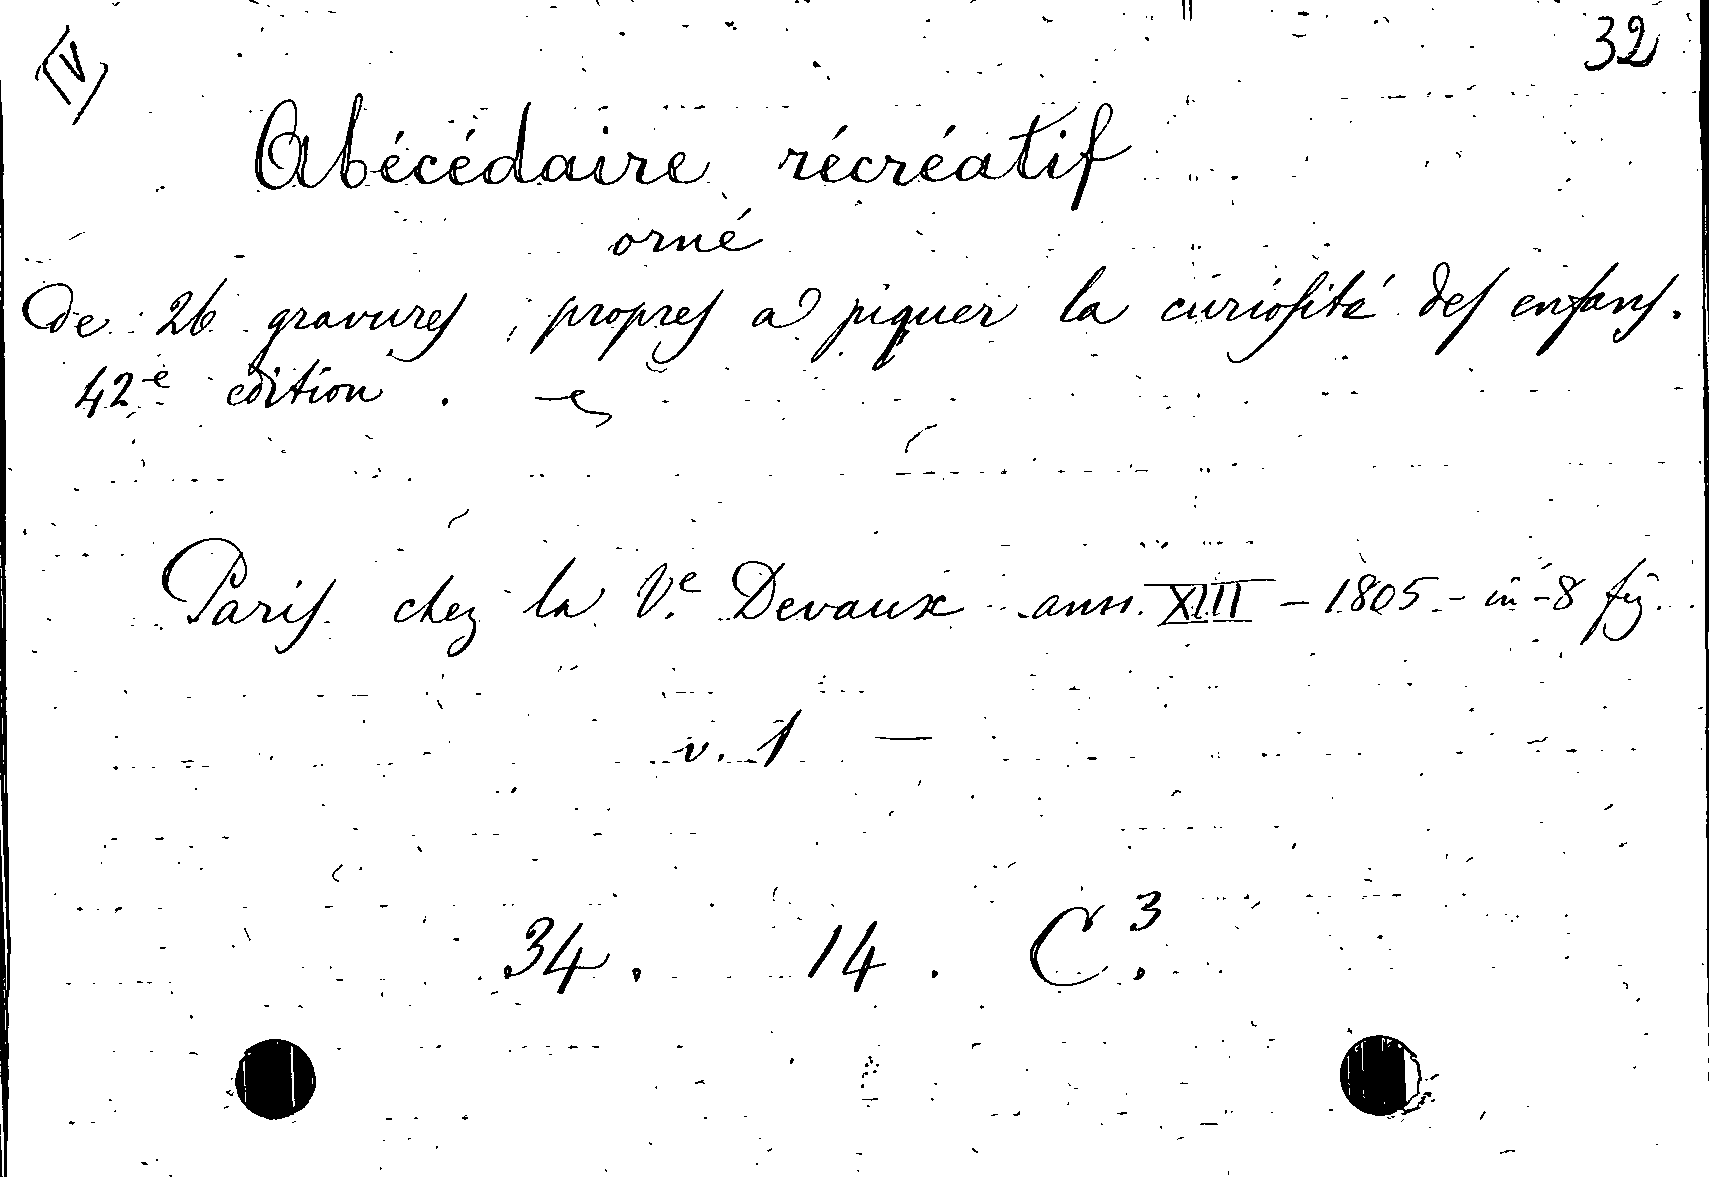 IV
32
Abécédaire récréatif
orné
de 26 gravures, propres a piquer la curiosité des enfans.
42e edition.
Paris chez la Ve Devaux ann. XIII - 1805 - in-8 fig.
v. 1 —
34. 14. C3.